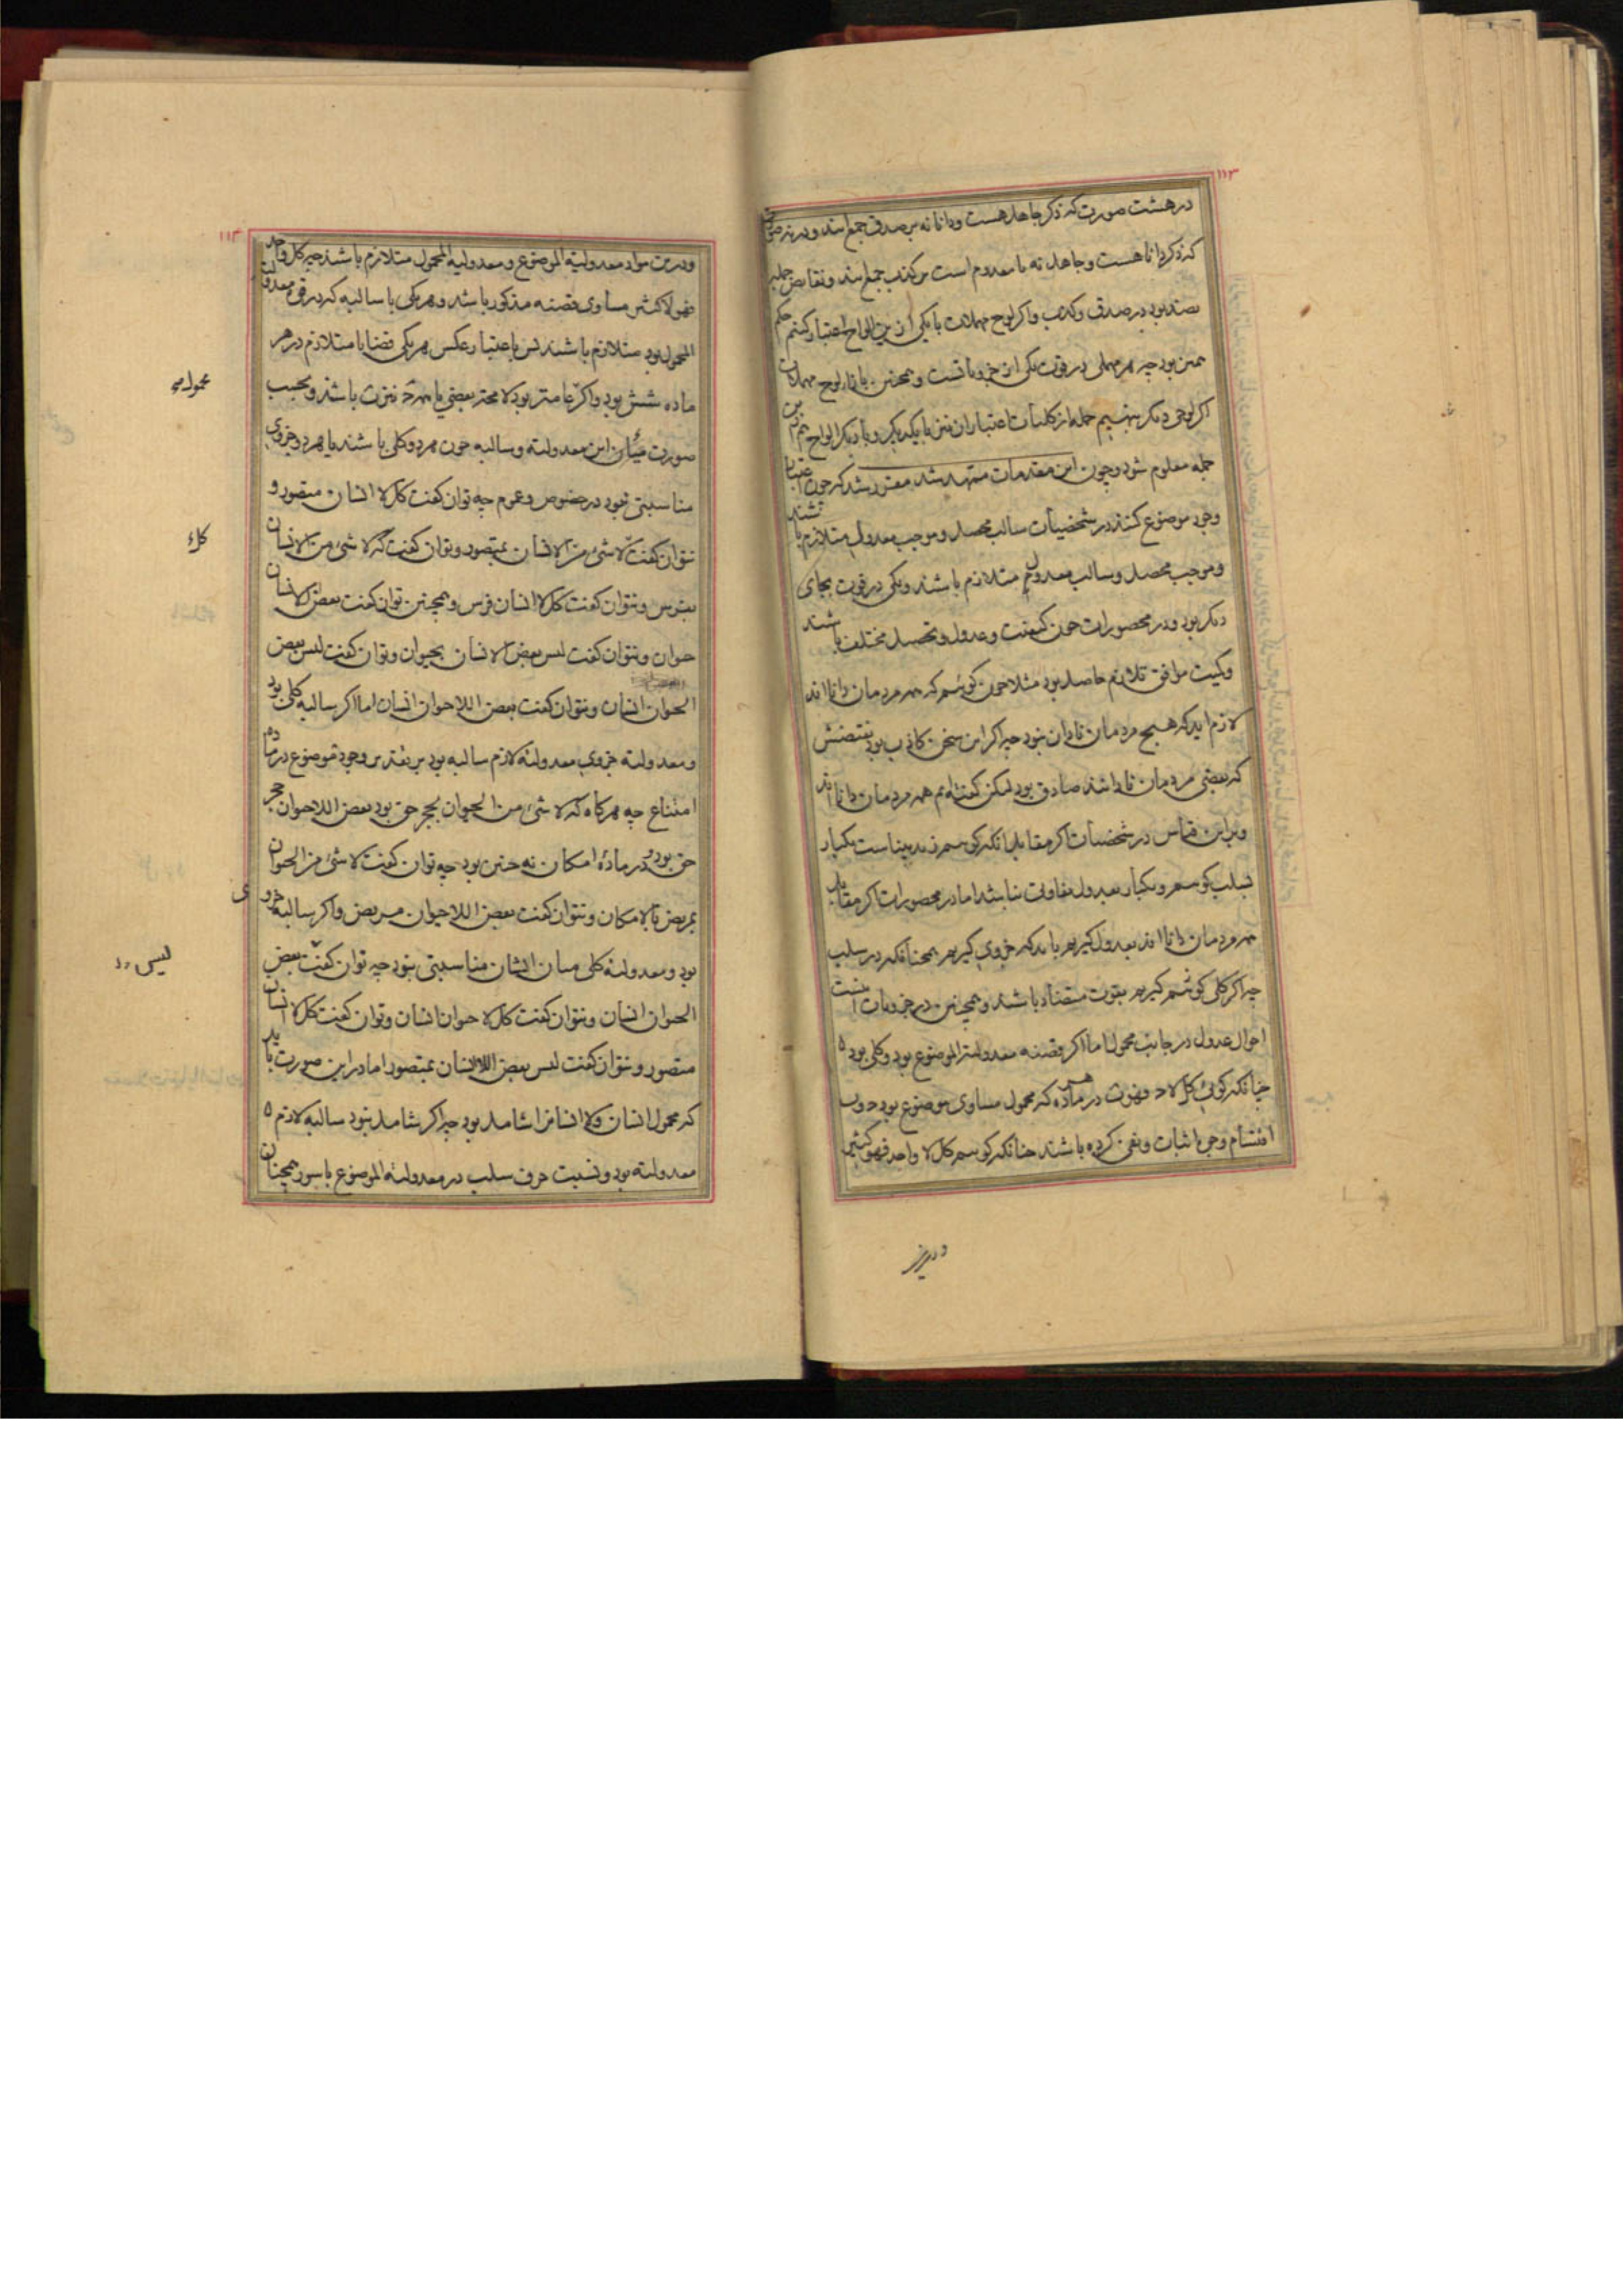 ۱۱۳
در هشت صورت که ذکر جاهل هست و دانا نه بر صدق جمع اند و در نه صورت
که ذکر دانا هست و جاهل نه یا معدوم است بر کذب جمع اند و نقایض جمله
بضد بود در صدق و کذب و اگر لوح مهملات با یکی ازین الواح اعتبار کنیم حکم
همین بود چه هر مهملی در قوت یکی از جزویاتست و همچنین با لوح مهملات
اگر لوحی دیگر بنهیم جمله از کلیات اعتبار این نیز با یکدیگر و با دیگر الواح هم ازین
جمله معلوم شود و چون این مقدمات متمهد شد مقرر شد که چون اعتبار
وجود موضوع کنند در شخصیات سالب محصل و موجب معدول متلازم باشند
و موجب محصل و سالب معدول متلازم باشند و یکی در قوت بجای
دیگر بود و در محصورات چون کیفیت و عدول و تحصیل مختلف باشند
و کمیت موافق تلازم حاصل بود مثلا چون گوئیم که همه مردمان دانا اند
لازم اید که هیچ مردمان نادان نبود چه اگر این سخن کاذب بود نقیضش
که بعضی مردمان نادانند صادق بود لیکن گفته ایم همه مردمان دانا اند
و برین قیاس در شخصیات اگر مقابل انکه گوئیم زید بیناست یکبار
بسلب گوئیم و یکبار بعدول تفاوت نباشد اما در محصورات اگر مقابل
همه مردمان دانا اند بعدول گیریم باید که جزوی گیریم همچنانکه در سلب
چه اگر کلی گوئیم بقوت متضاد باشند و همچنین در جزویات اینست
احوال عدول در جانب محمول اما اگر قضیه معدولیة الموضوع بود و کلی بود
چنانکه گوئی کل لا د فهو ت در هر ماده که محمول مساوی موضوع بود دون
اقتسام وجه اثبات و نفی کرده باشند چنانکه گوئیم کل لا واحد فهو کثیر
۱۱۴
و درین مواد معدولیة الموضوع و معدولیة المحمول متلازم باشند چه کل واحد
فهو لا کثیر مساوی قضیه مذکور باشد و هر یکی با سالبه که در قوت معدولیة
المحمول بود متلازم باشند پس باعتبار عکس هر یکی قضایا متلازم در هر
ماده شش بود و اگر عامتر بود لا محه بعضی یا همه د نیز ت باشد و بحسب
صورت میان این معدولیه و سالبه چون هر دو کلی باشند یا هر دو جزوی
مناسبتی نبود در خصوص و عموم چه توان گفت کل لا انسان متصور و
نتوان گفت لا شئ من الانسان بمتصور و توان گفت که لا شئ من الانسان
بفرس و نتوان گفت کل لا انسان فرس و همچنین توان گفت بعض الانسان
حیوان و نتوان گفت لیس بعض الانسان بحیوان و توان گفت لیس بعض
الحیوان انسان و نتوان گفت بعض اللاحیوان انسان اما اگر سالبه کلی بود
و معدولیه جزوی معدولیه لازم سالبه بود بر تقدیر وجود موضوع در ماده
امتناع چه هر گاه که لا شئ من الحیوان بحجر حق بود بعض اللاحیوان حجر
حق بود و در ماده امکان نه چنین بود چه توان گفت لا شئ من الحیوان
بمریض بالامکان و نتوان گفت بعض اللاحیوان مریض و اگر سالبه جزوی
بود و معدولیه کلی میان ایشان مناسبتی نبود چه توان گفت بعض
الحیوان انسان و نتوان گفت کل لا حیوان انسان و توان گفت کل لا انسان
متصور و نتوان گفت لیس بعض اللاانسان بمتصور اما در این صورت باید
که محمول انسان و لا انسان را شامل بود چه اگر شامل نبود سالبه لازم
معدولیه بود و نسبت حرف سلب در معدولیة الموضوع با سور همچنان
محمول
کل
لیس